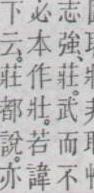 志強、莊。武而不
必本作壯。若諱
下云。莊都說。亦